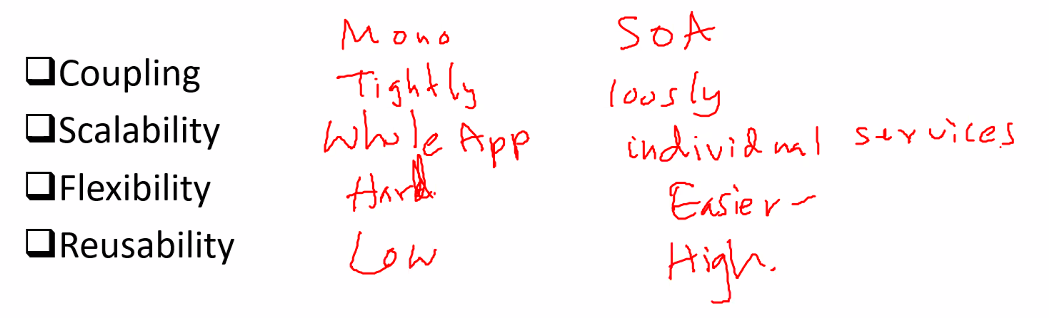 Mono SOA
❑Coupling Tightly loosly
❑Scalability Whole App individual services
❑Flexibility Hard. Easier-
❑Reusability Low High.